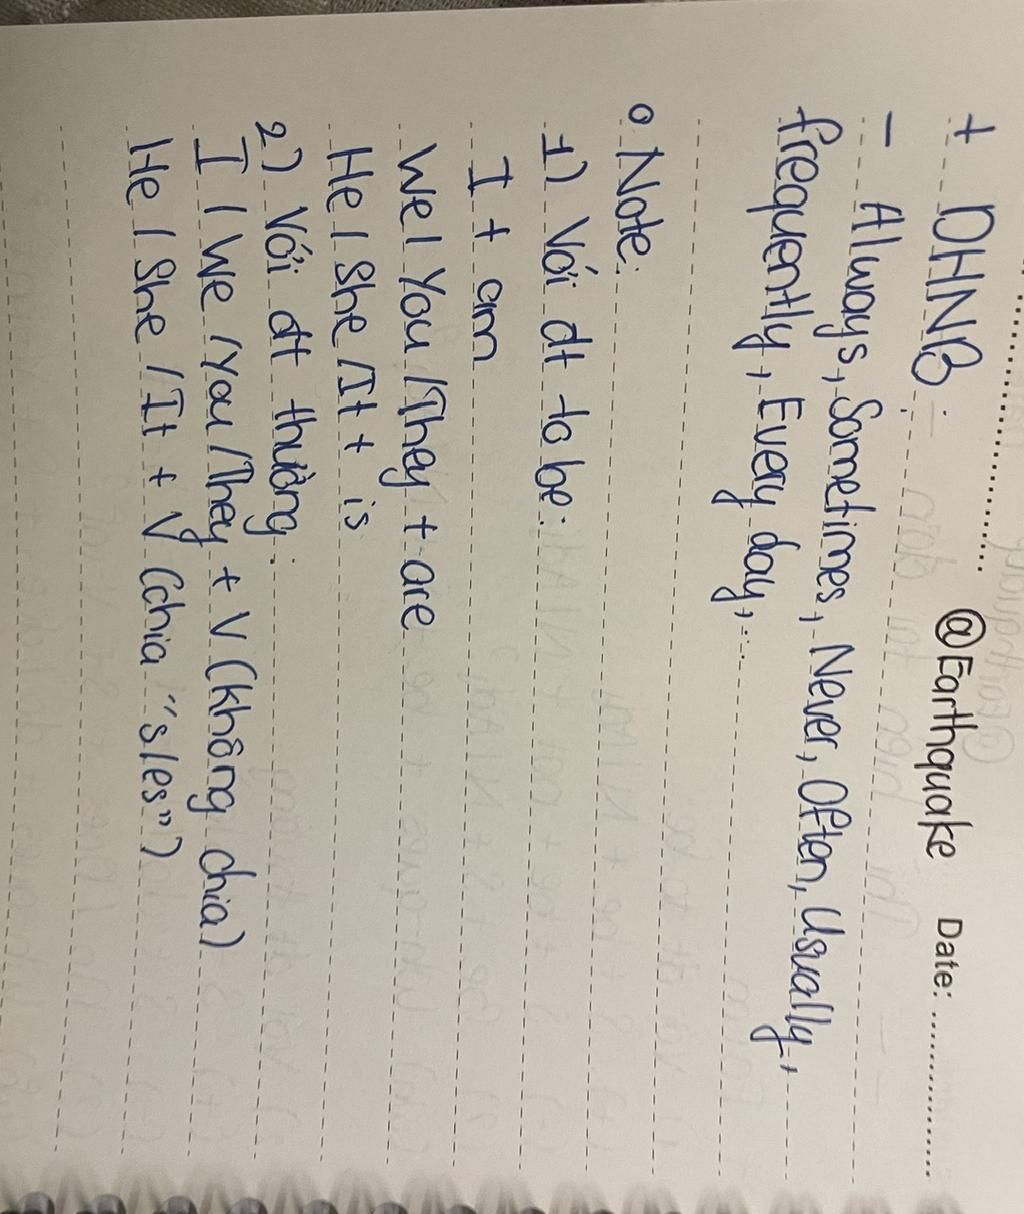 @Earthquake Date:
+ DHNB:
- Always, Sometimes, Never, Often, Usually,
frequently, Every day,...
o Note:
1) Với dt to be:
I + am
We / You / They + are
He / She / It + is
2) Với dt thường:
I / We / You / They + V (không chia)
He / She / It + V (chia "s/es")